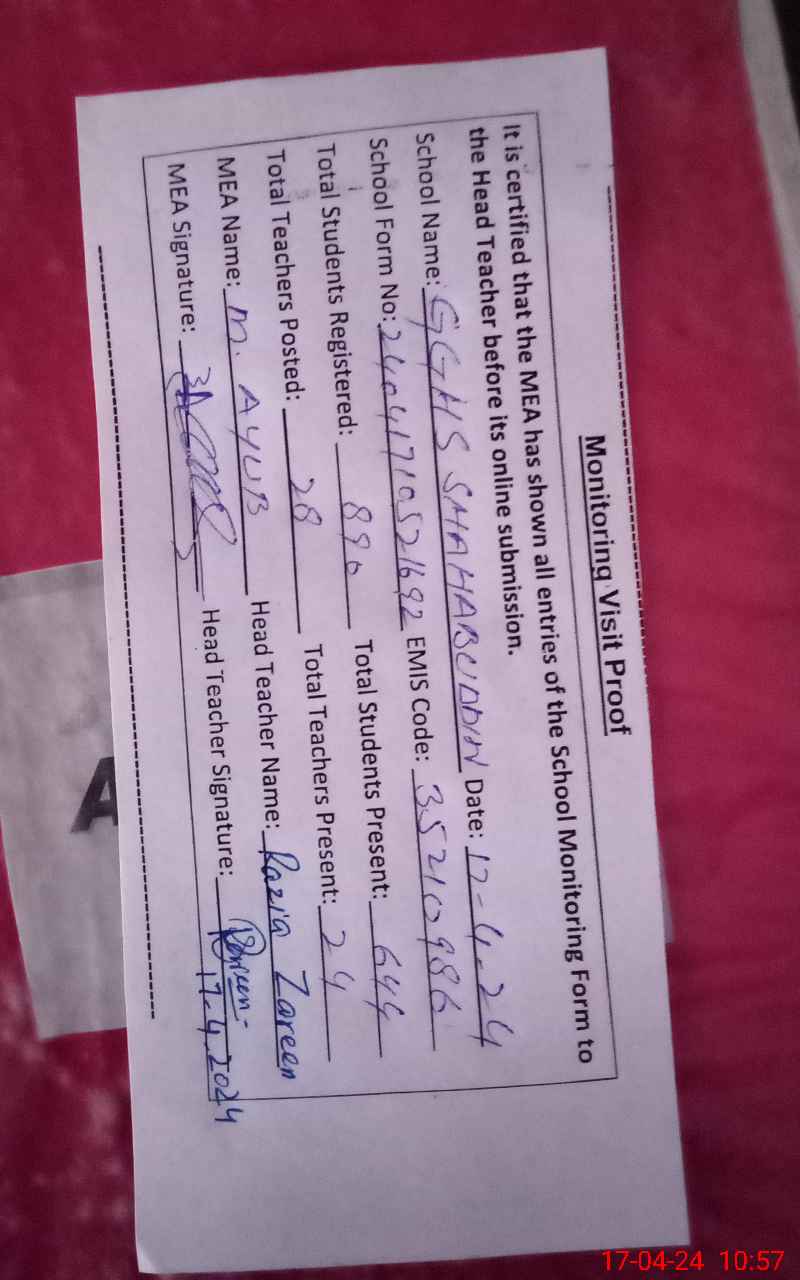 Monitoring Visit Proof
It is certified that the MEA has shown all entries of the School Monitoring Form to
the Head Teacher before its online submission.
School Name: GGHS SHAHABUDDIN Date: 17-4-24
School Form No: 24041710521692 EMIS Code: 35210986
Total Students Registered: 890 Total Students Present: 644
Total Teachers Posted: 28 Total Teachers Present: 24
MEA Name: M. AYUB Head Teacher Name: Razia Zareen
MEA Signature: Head Teacher Signature:
17-4-2024
A
17-04-24 10:57